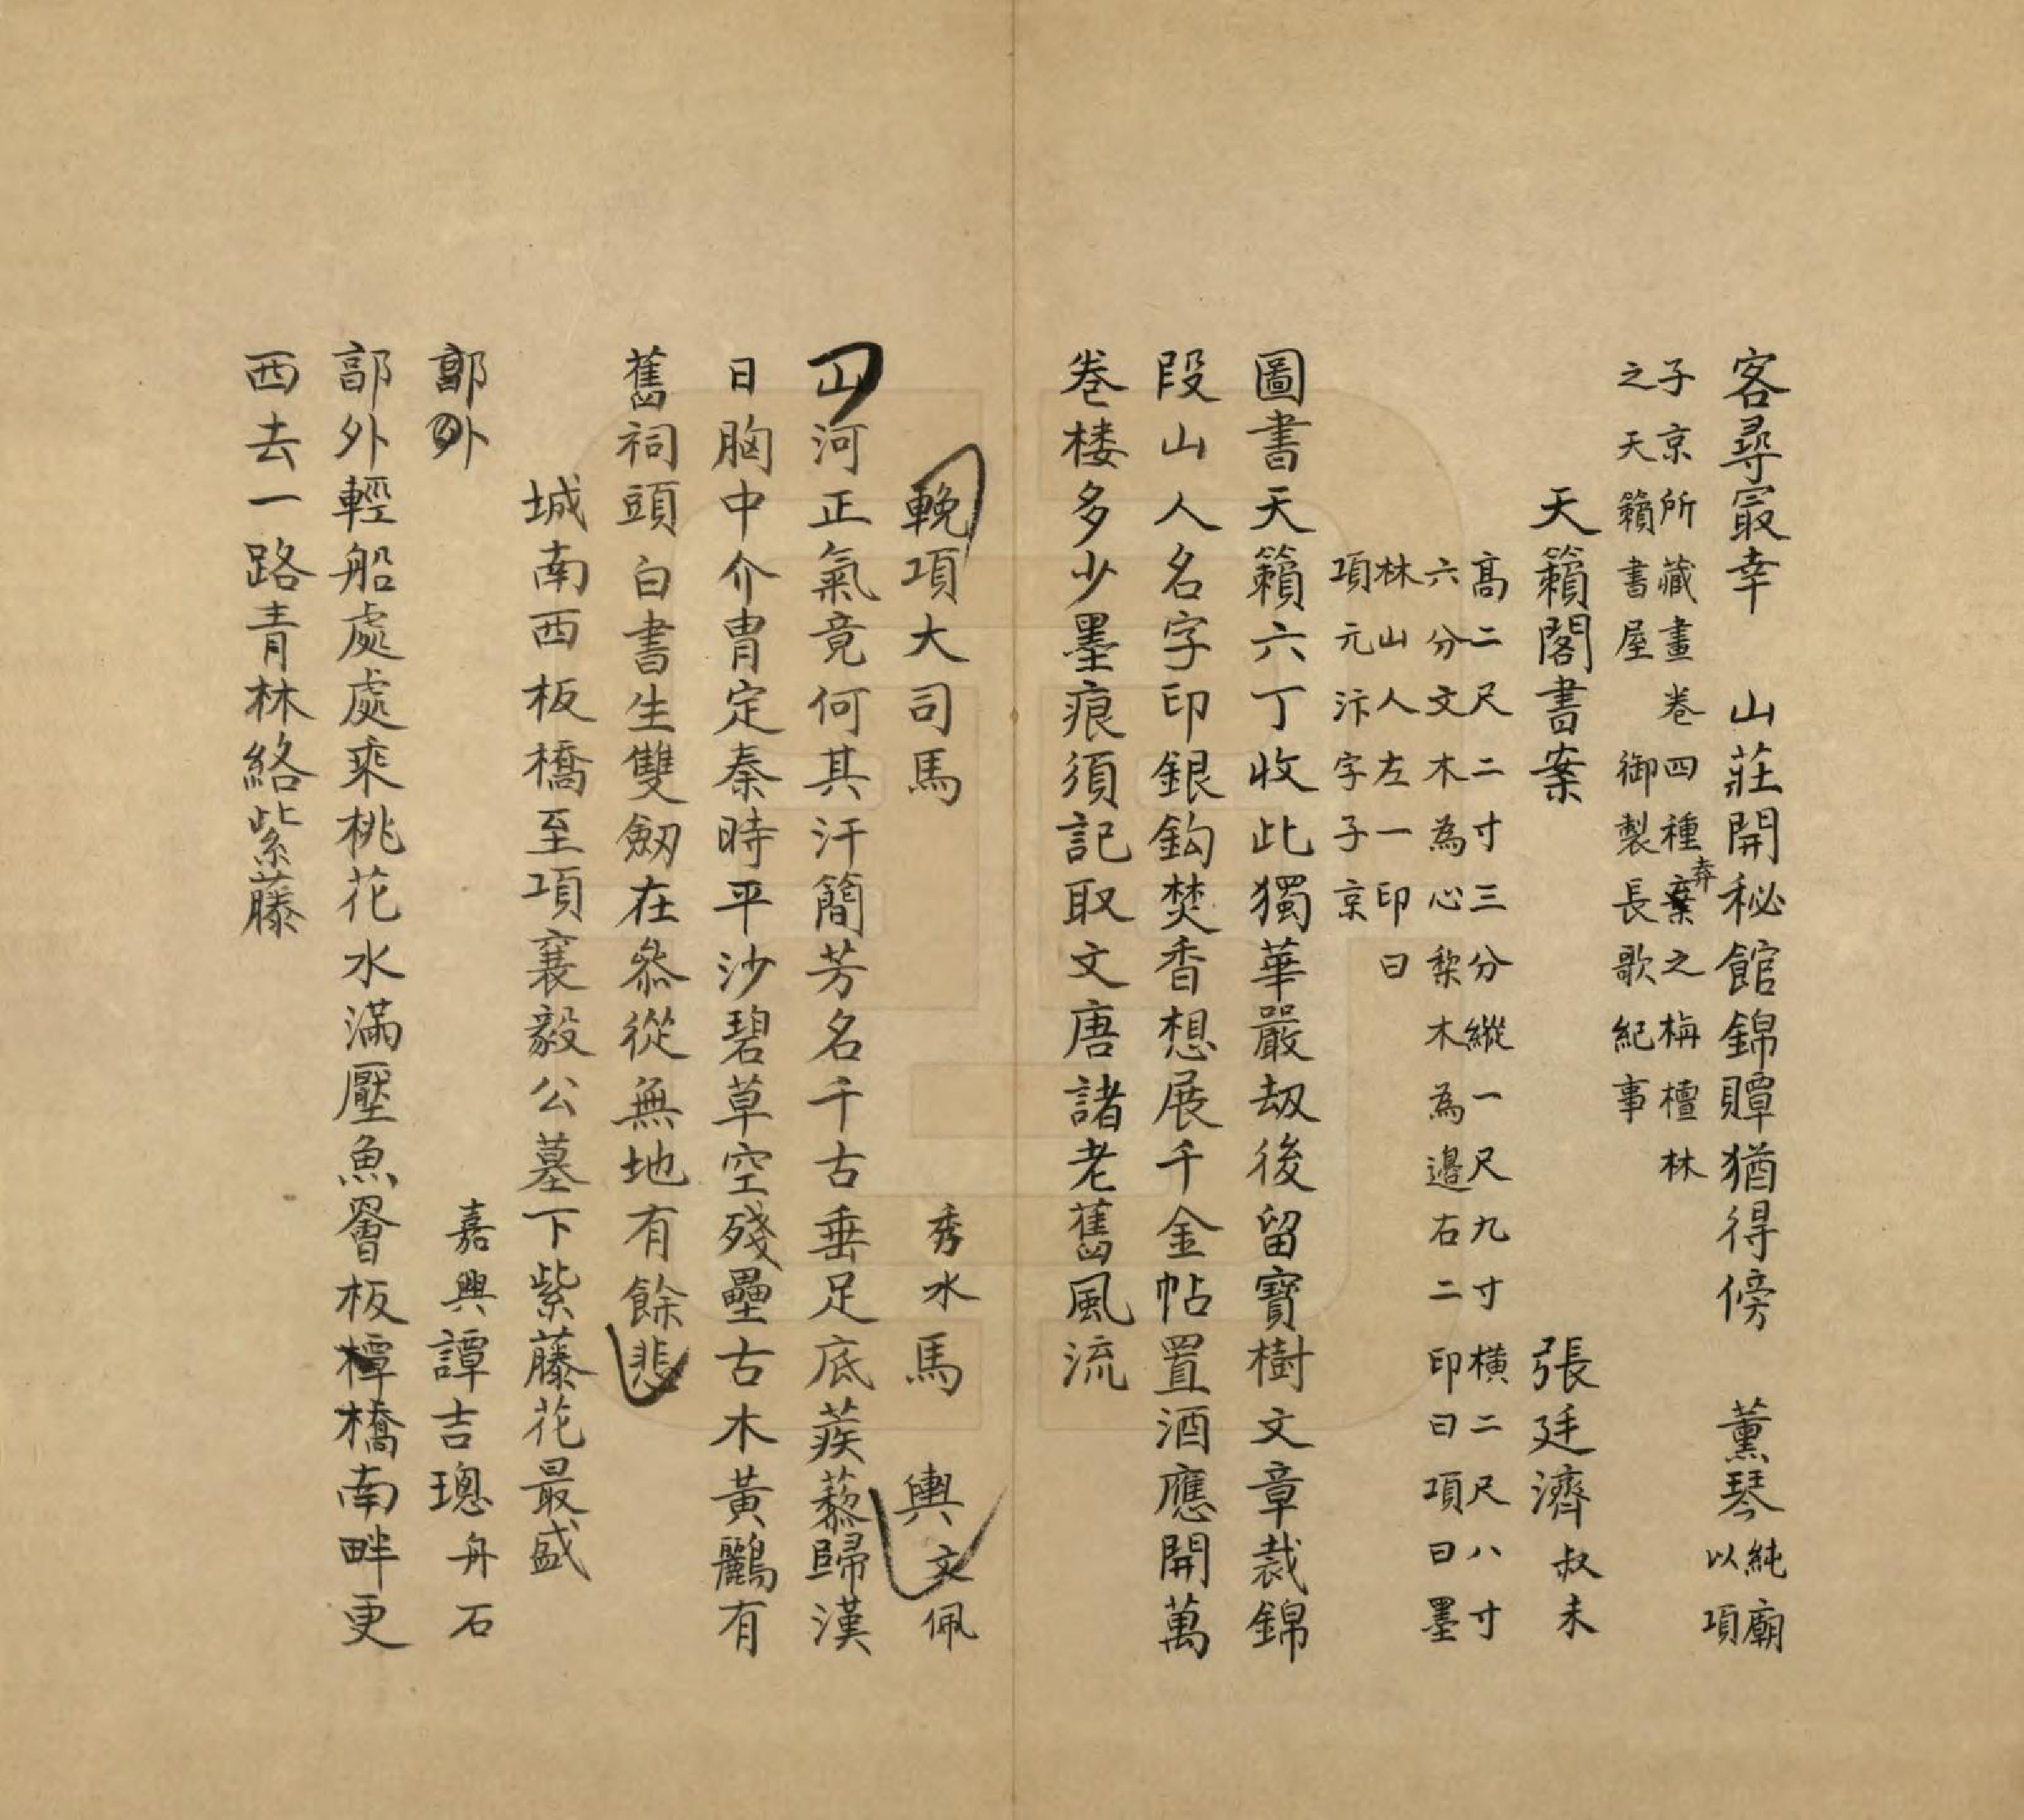 客尋冣幸　山莊開秘館錦贉猶得傍　薰琴純廟
以項
子京所藏畫卷四種弆之栴檀林
之天籟書屋　御製長歌紀事
天籟閣書案　張廷濟叔未
高二尺二寸三分縱一尺九寸橫二尺八寸
六分文木為心棃木為邊右二印曰項曰墨
林山人左一印曰
項元汴字子京
圖書天籟六丁收此獨華嚴刼後留寶樹文章裁錦
段山人名字印銀鈎焚香想展千金帖置酒應開萬
卷楼多少墨痕須記取文唐諸老舊風流
輓項大司馬　秀水馬　輿文佩
山河正氣竟何其汗簡芳名千古垂足底蒺藜歸漢
日胸中介胄定秦時平沙碧草空殘壘古木黃鸝有
舊祠頭白書生雙劒在叅從無地有餘悲
城南西板橋至項襄毅公墓下紫藤花最盛
郭外　嘉興譚吉璁舟石
郭外輕船處處乘桃花水滿壓魚罾板橋南畔更
西去一路青林絡紫藤